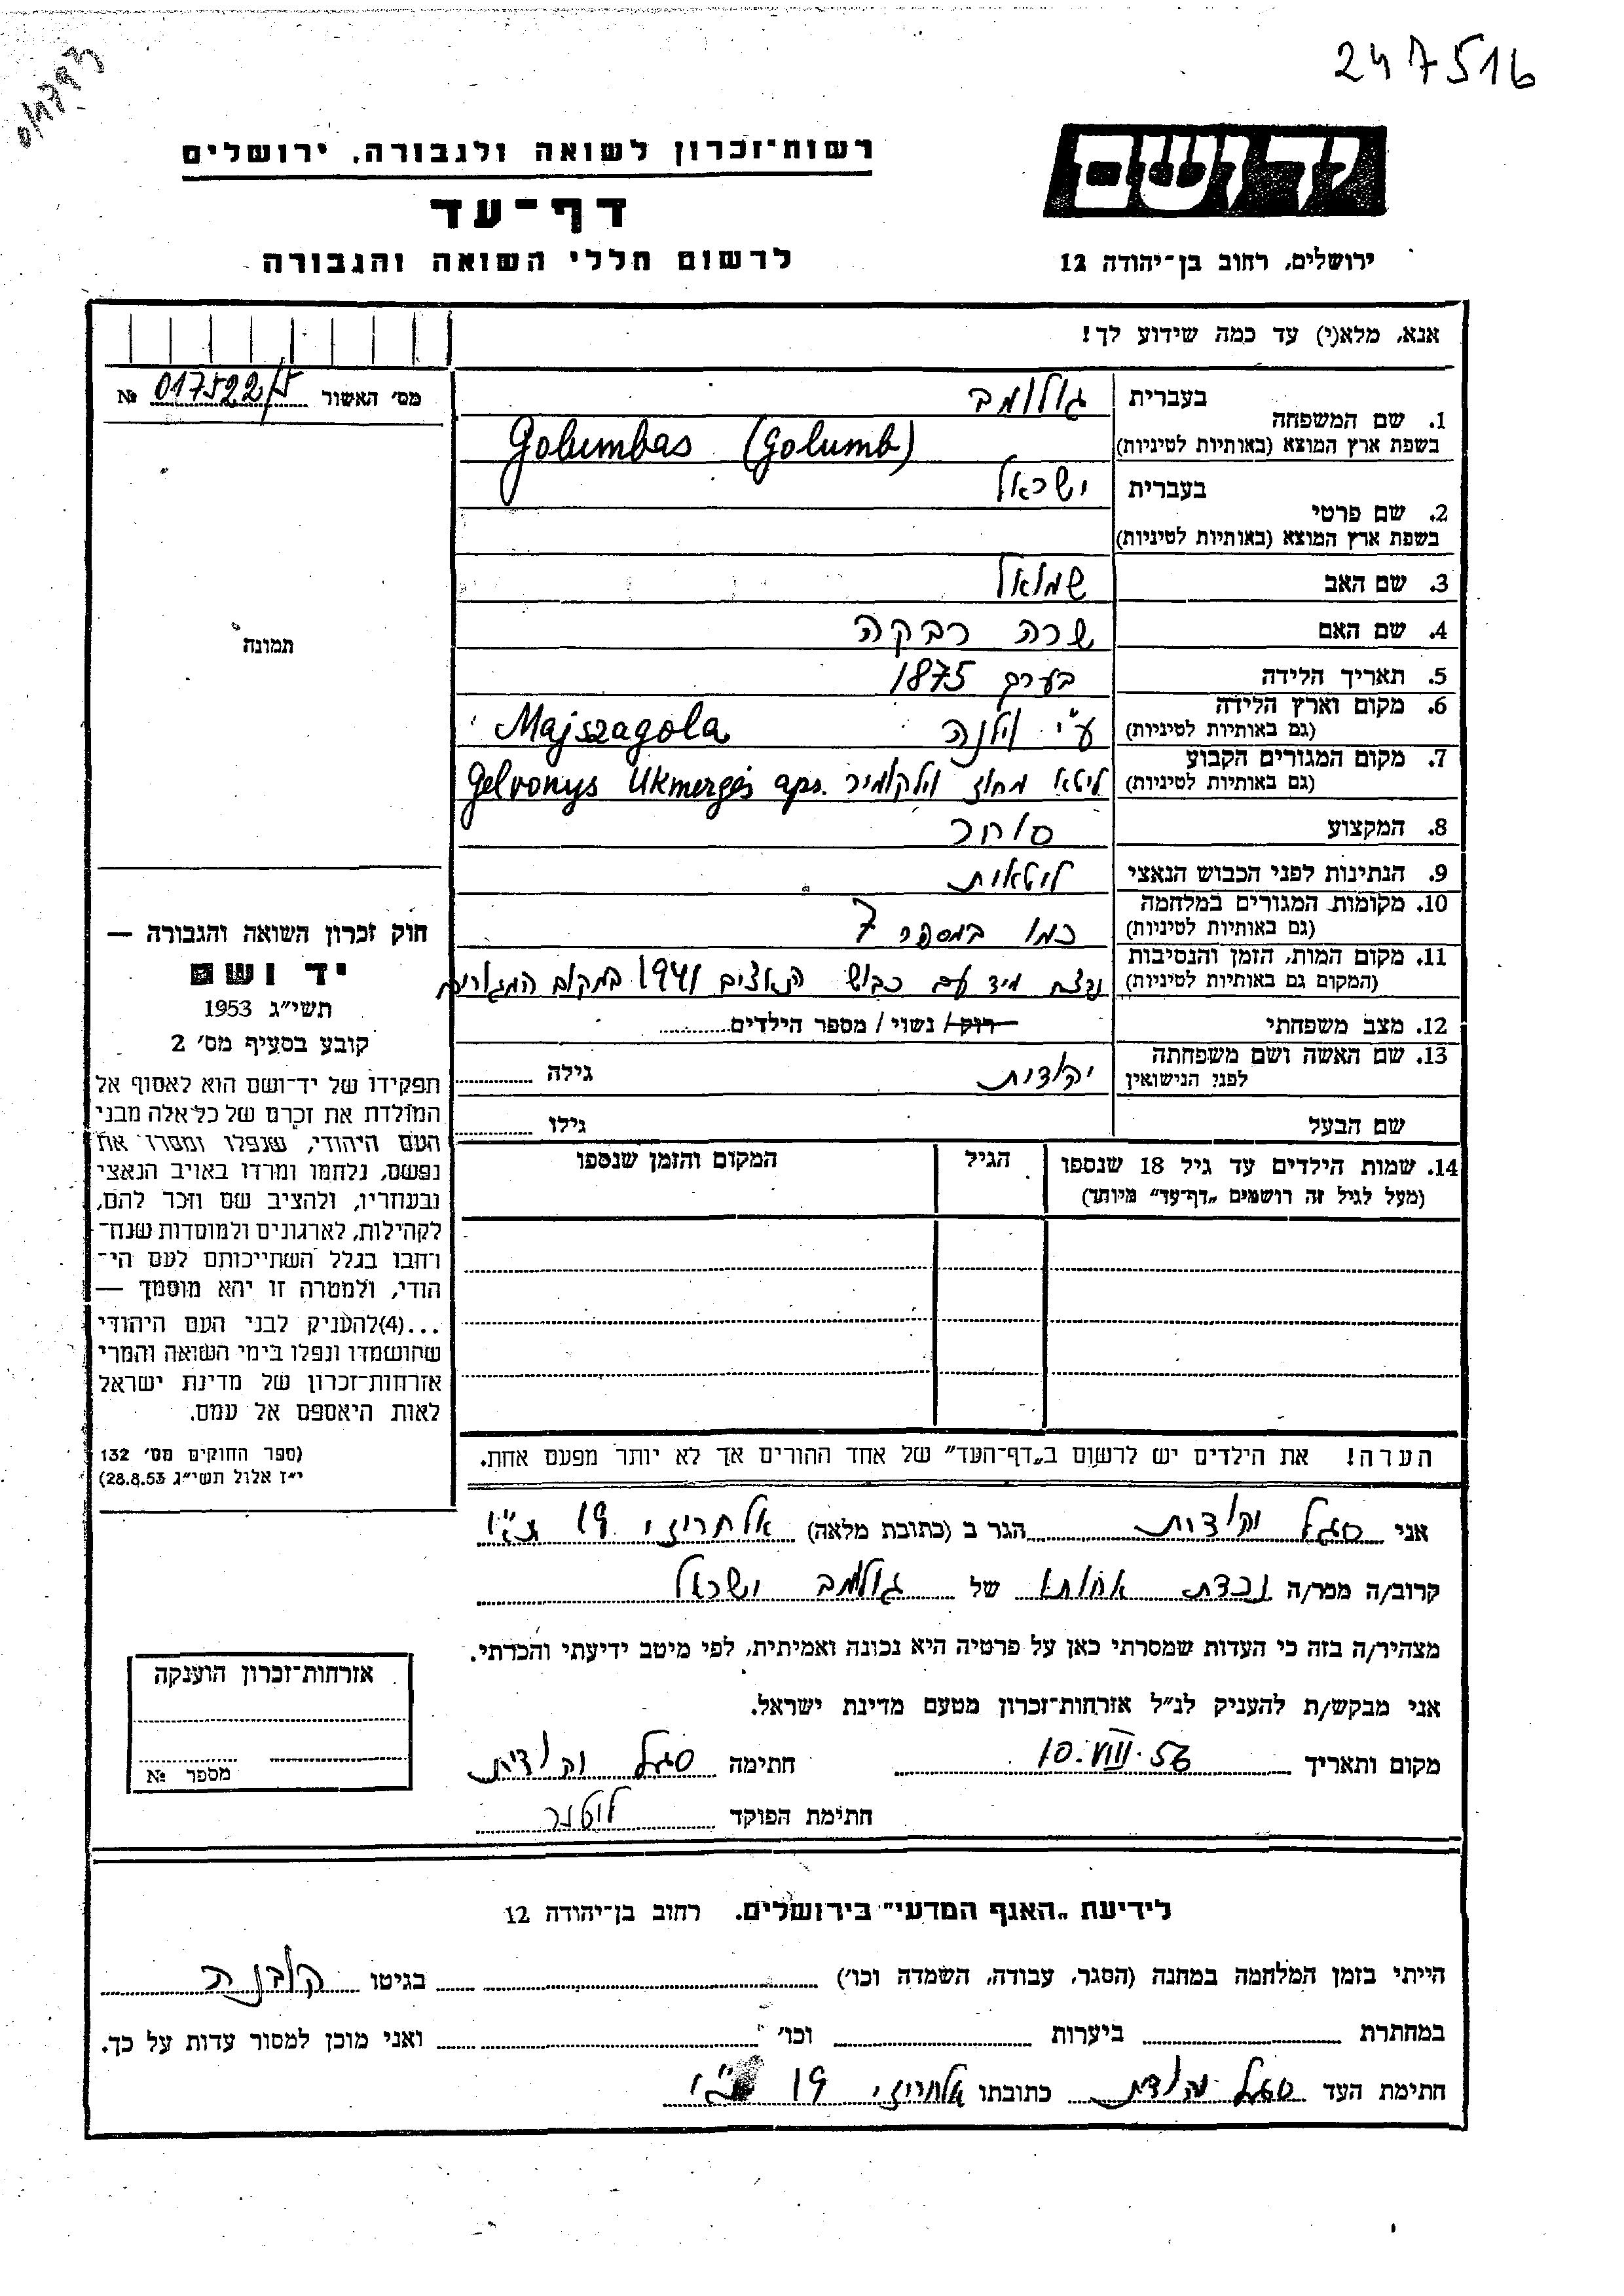 247516
יד ושם
רשות־זכרון לשואה ולגבורה, ירושלים
דף־עד
לרשום חללי השואה והגבורה
ירושלים, רחוב בן־יהודה 12
אנא, מלא(י) עד כמה שידוע לך!
מס' האשור № 017522/5
1. שם המשפחה
בעברית גולומב
בשפת ארץ המוצא (באותיות לטיניות) Golumbas (Golumb)
2. שם פרטי
בעברית ישראל
בשפת ארץ המוצא (באותיות לטיניות)
3. שם האב שמואל
4. שם האם שרה רבקה
5. תאריך הלידה בערך 1875
6. מקום וארץ הלידה
(גם באותיות לטיניות) ע"י וילנה Majszagola
7. מקום המגורים הקבוע
(גם באותיות לטיניות) ליטא מחוז וילקומיר Gelvonys Ukmergės aps.
8. המקצוע סוחר
9. הנתינות לפני הכבוש הנאצי ליטאית
10. מקומות המגורים במלחמה
(גם באותיות לטיניות) כמו במספר 7
11. מקום המות, הזמן והנסיבות
(המקום גם באותיות לטיניות) נרצח מיד עם כבוש הנאצים 1941 במקום המגורים
12. מצב משפחתי רוק / נשוי / מספר הילדים
13. שם האשה ושם משפחתה
לפני הנישואין גילה
שם הבעל גילו
14. שמות הילדים עד גיל 18 שנספו
(מעל לגיל זה רושמים „דף־עד" מיוחד)
הגיל
המקום והזמן שנספו
תמונה
חוק זכרון השואה והגבורה —
יד ושם
תשי"ג 1953
קובע בסעיף מס' 2
תפקידו של יד־ושם הוא לאסוף אל
המולדת את זכרם של כל אלה מבני
העם היהודי, שנפלו ומסרו את
נפשם, נלחמו ומרדו באויב הנאצי
ובעוזריו, ולהציב שם וזכר להם,
לקהילות, לארגונים ולמוסדות שנח־
רחבו בגלל השתייכותם לעם הי־
הודי, ולמטרה זו יהא מוסמך —
...(4)להעניק לבני העם היהודי
שהושמדו ונפלו בימי השואה והמרי
אזרחות־זכרון של מדינת ישראל
לאות היאספם אל עמם.
(ספר החוקים מס' 132
י"ז אלול תשי"ג 28.8.53)
הערה! את הילדים יש לרשום ב„דף־העד" של אחד ההורים אך לא יותר מפעם אחת.
אני סגל הגר ב (כתובת מלאה) אלחריזי 19 ת"א
קרוב/ה מכר/ה נכדת אחותו של גולומב ישראל
מצהיר/ה בזה כי העדות שמסרתי כאן על פרטיה היא נכונה ואמיתית, לפי מיטב ידיעתי והכרתי.
אני מבקש/ת להעניק לנ"ל אזרחות־זכרון מטעם מדינת ישראל.
מקום ותאריך 10.VIII.56 חתימה סגל
חתימת הפוקד
אזרחות־זכרון הוענקה
מספר №
לידיעת „האגף המדעי" בירושלים. רחוב בן־יהודה 12
הייתי בזמן המלחמה במחנה (הסגר, עבודה, השמדה וכו') בגיטו קובנה
במחתרת ביערות וכו' ואני מוכן למסור עדות על כך.
חתימת העד סגל כתובתו אלחריזי 19 ת"א